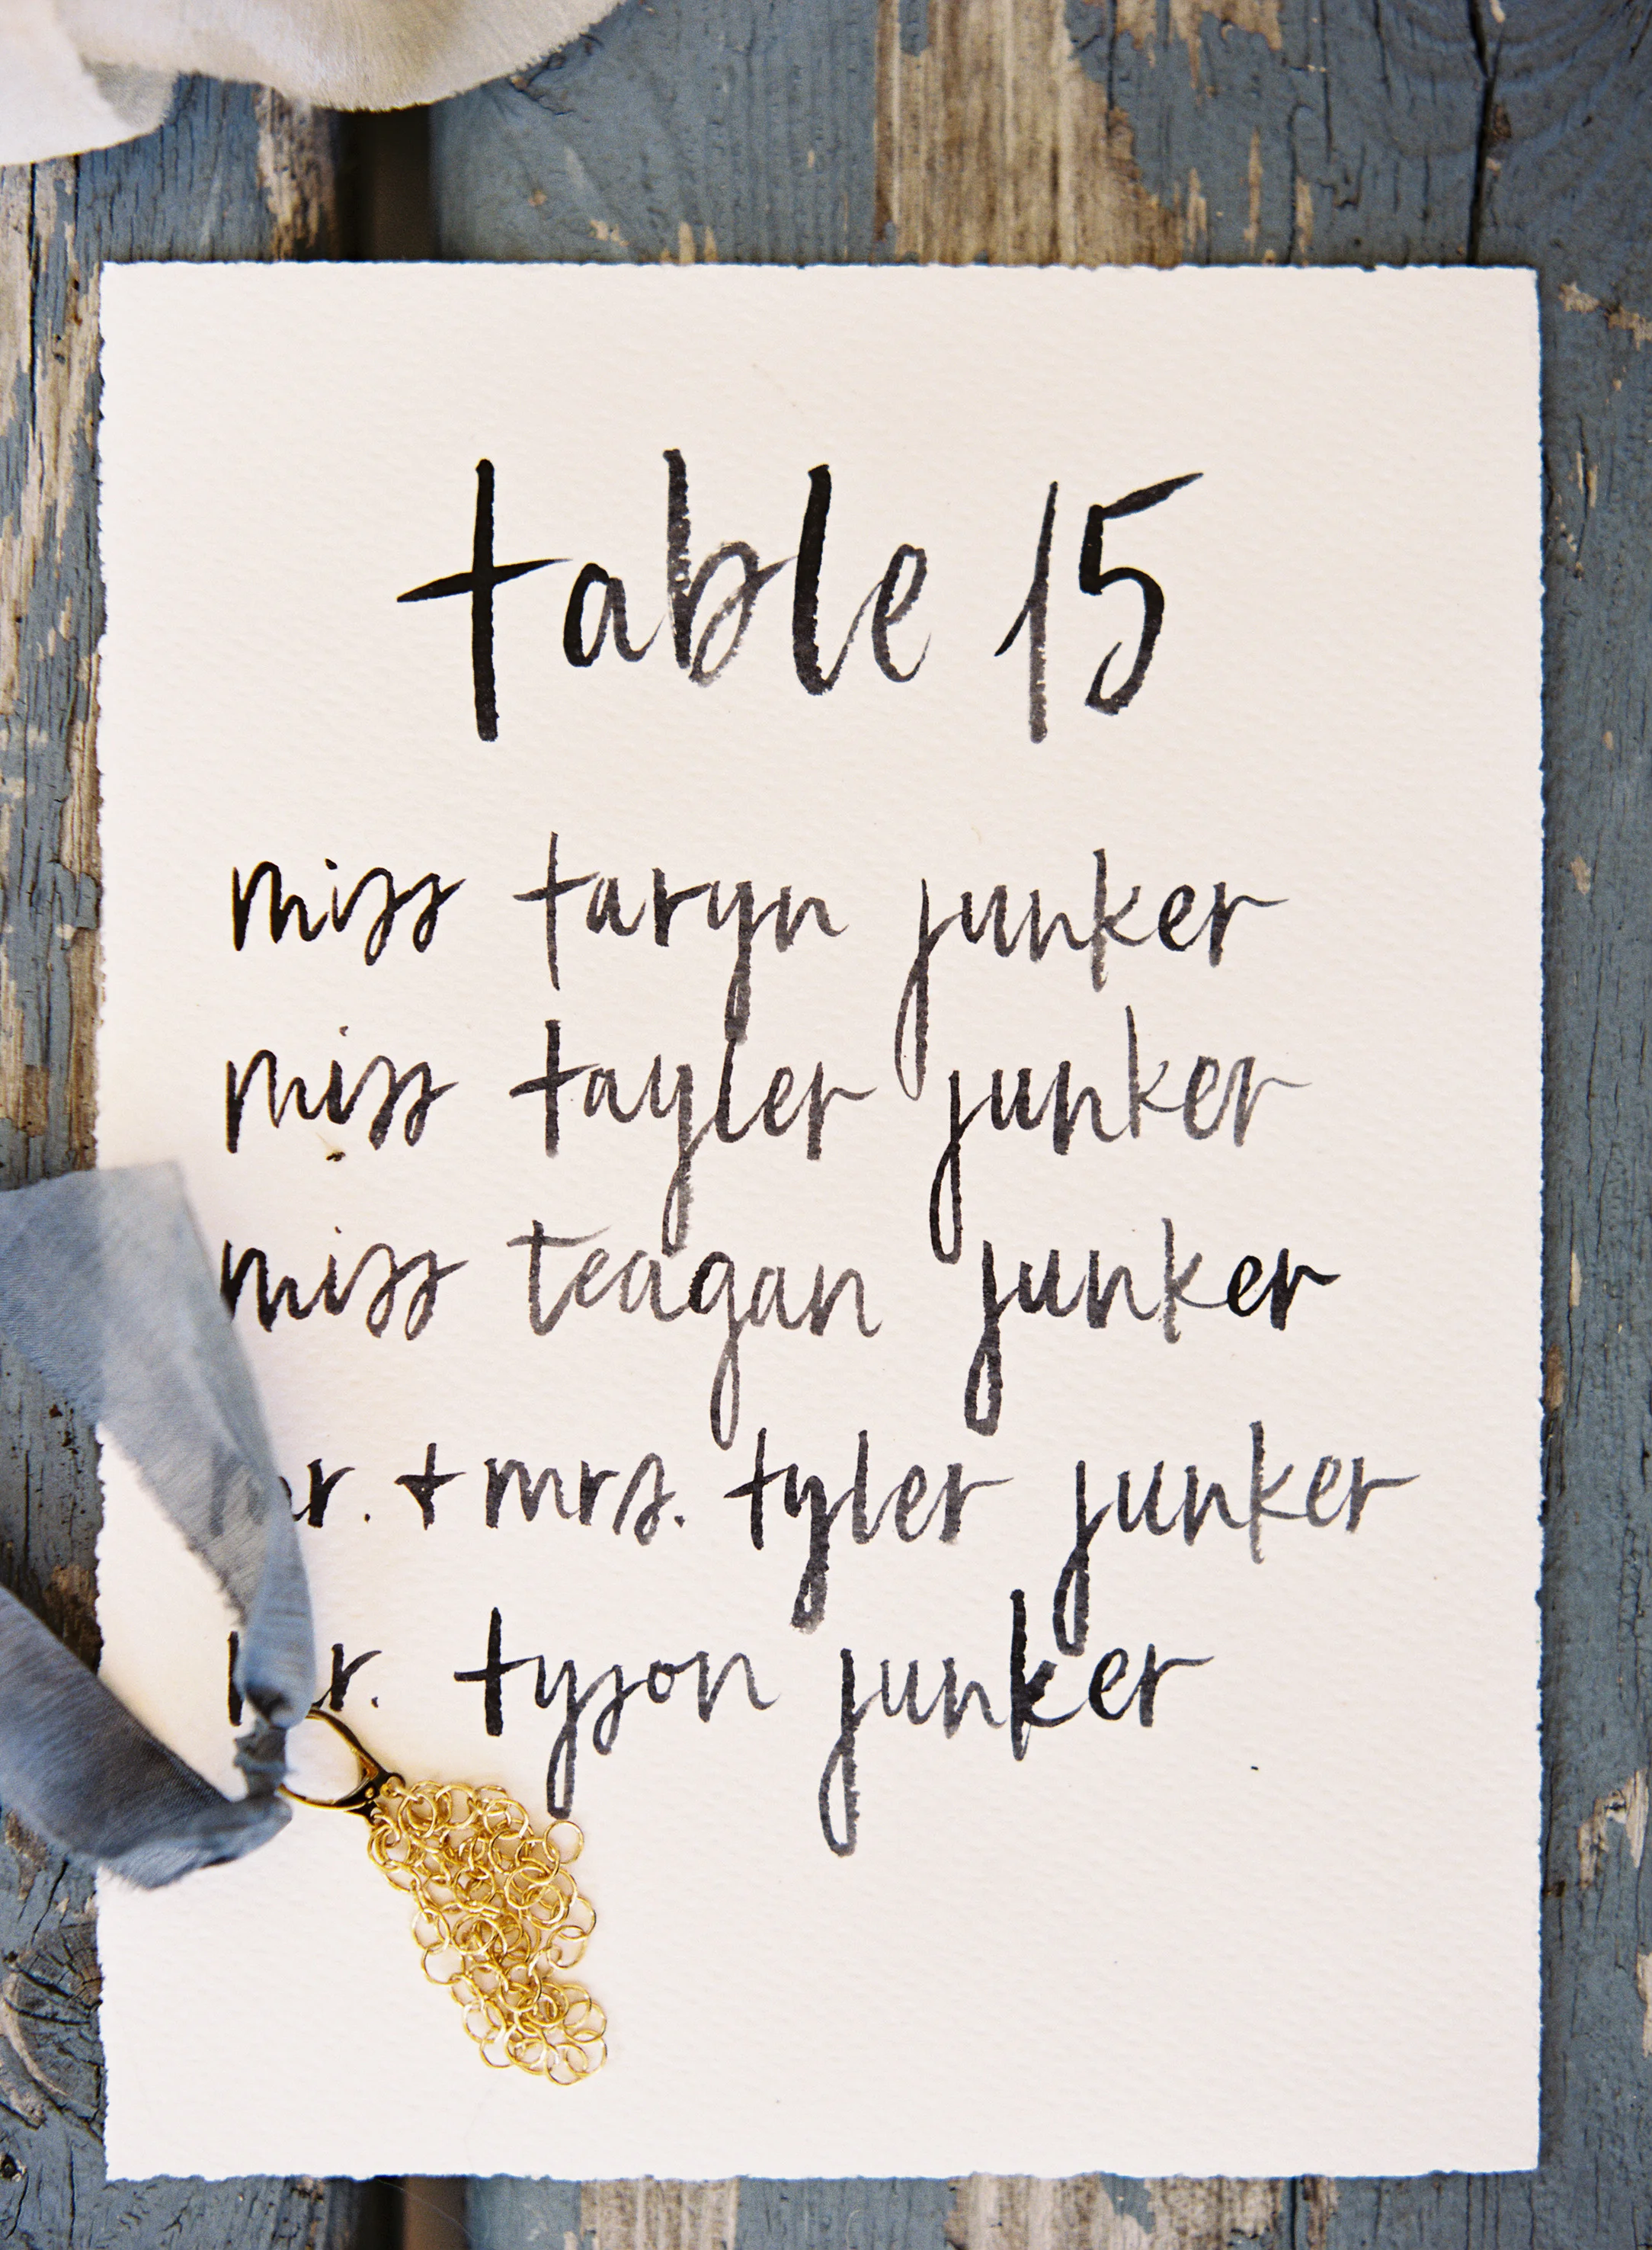 table 15
miss taryn junker
miss tayler junker
miss teagan junker
mr. + mrs. tyler junker
mr. tyson junker